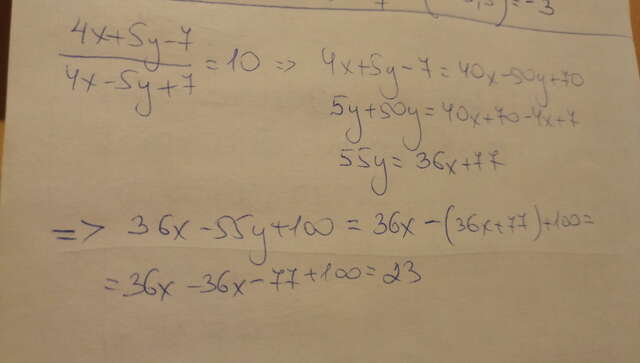 ) = -3
(4x+5y-7)/(4x-5y+7) = 10 => 4x+5y-7=40x-50y+70
5y+50y=40x+70-4x+7
55y=36x+77
=> 36x-55y+100 = 36x-(36x+77)+100=
=36x-36x-77+100=23